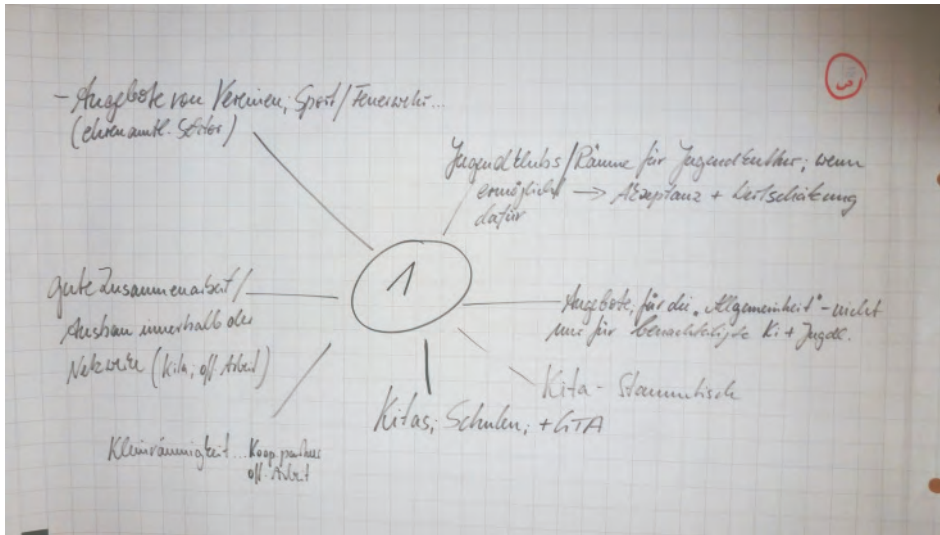 - Angebote von Vereinen, Sport/Feuerwehr...
(ehrenamtl. Sektor)
Jugendklubs/Räume für Jugendkultur; wenn
ermöglicht → Akzeptanz + Wertschätzung
dafür
1
gute Zusammenarbeit/
Ausbau innerhalb der
Netzwerke (Kita, off. Arbeit)
Angebote, für die "Allgemeinheit" - nicht
nur für benachteiligte Ki + Jugdl.
Kita - Stammtisch
Kitas; Schulen; + GTA
Kleinräumigkeit... Koop.partner
off. Arbeit